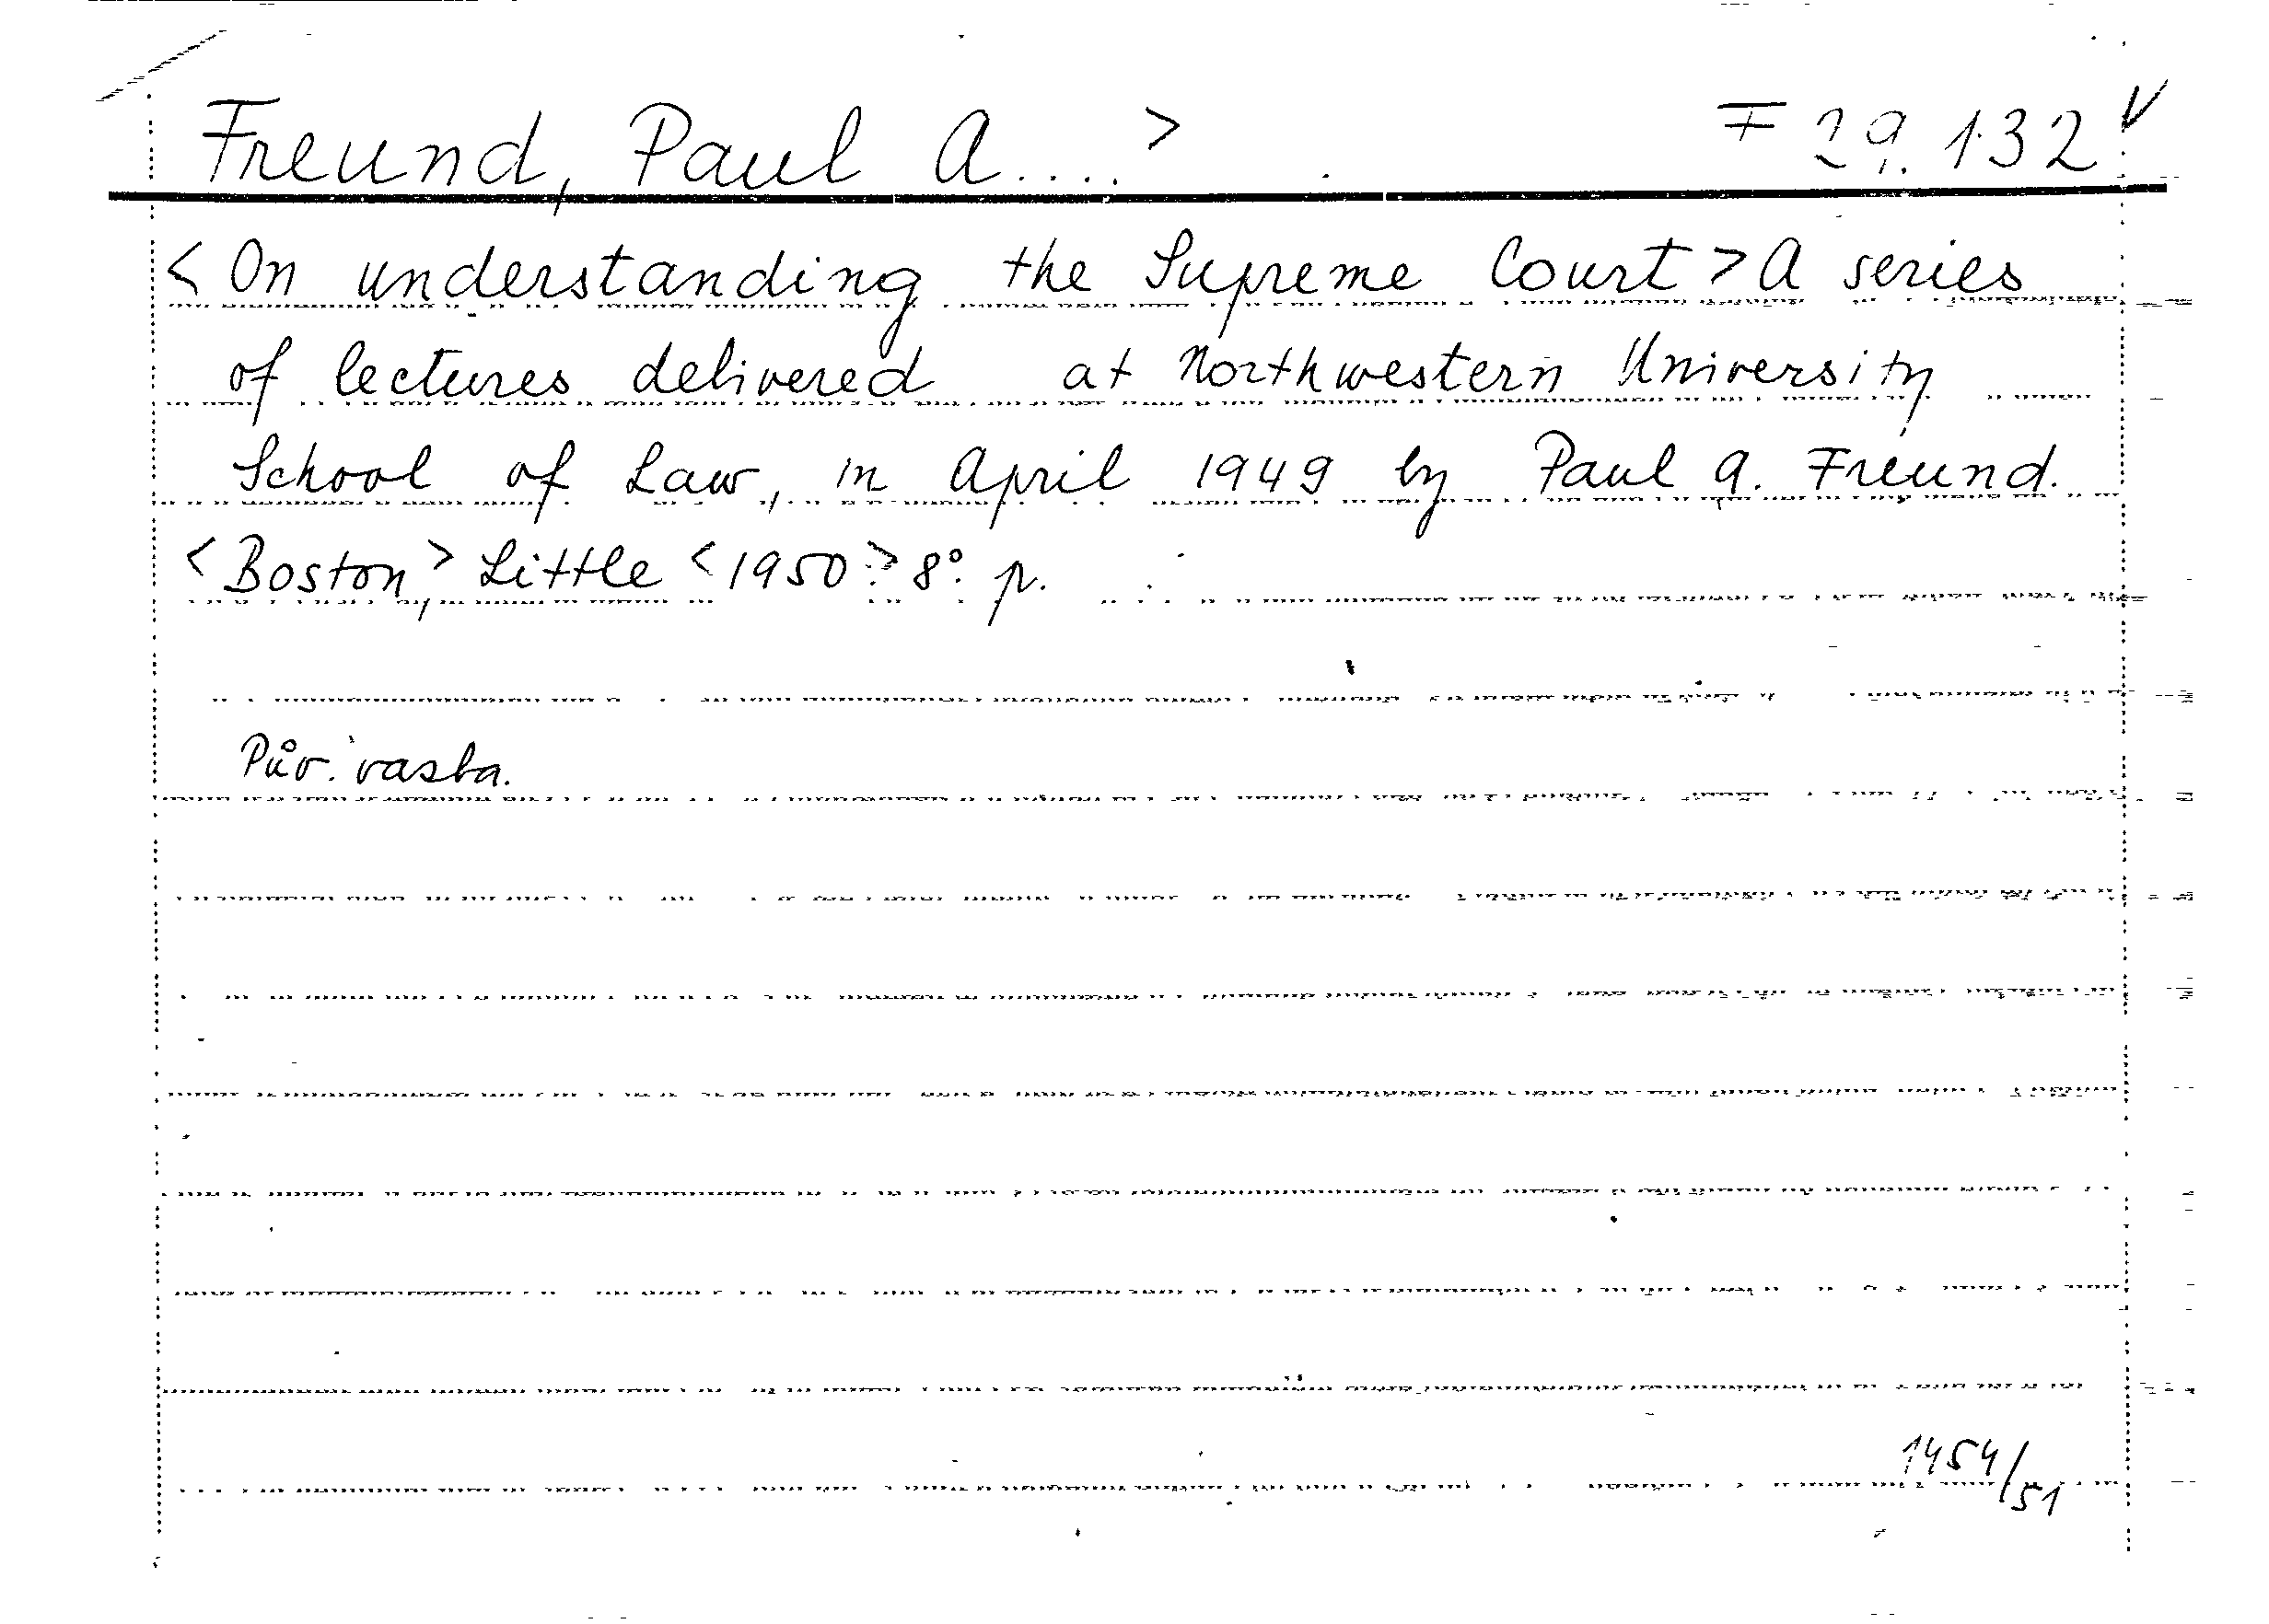 Freund, Paul A....> F 29.132 V
<On understanding the Supreme Court> A series
of lectures delivered at Northwestern University
School of Law, in April 1949 by Paul A. Freund.
<Boston,> Little <1950.> 8°. p.
Pův. vasba.
1454/51